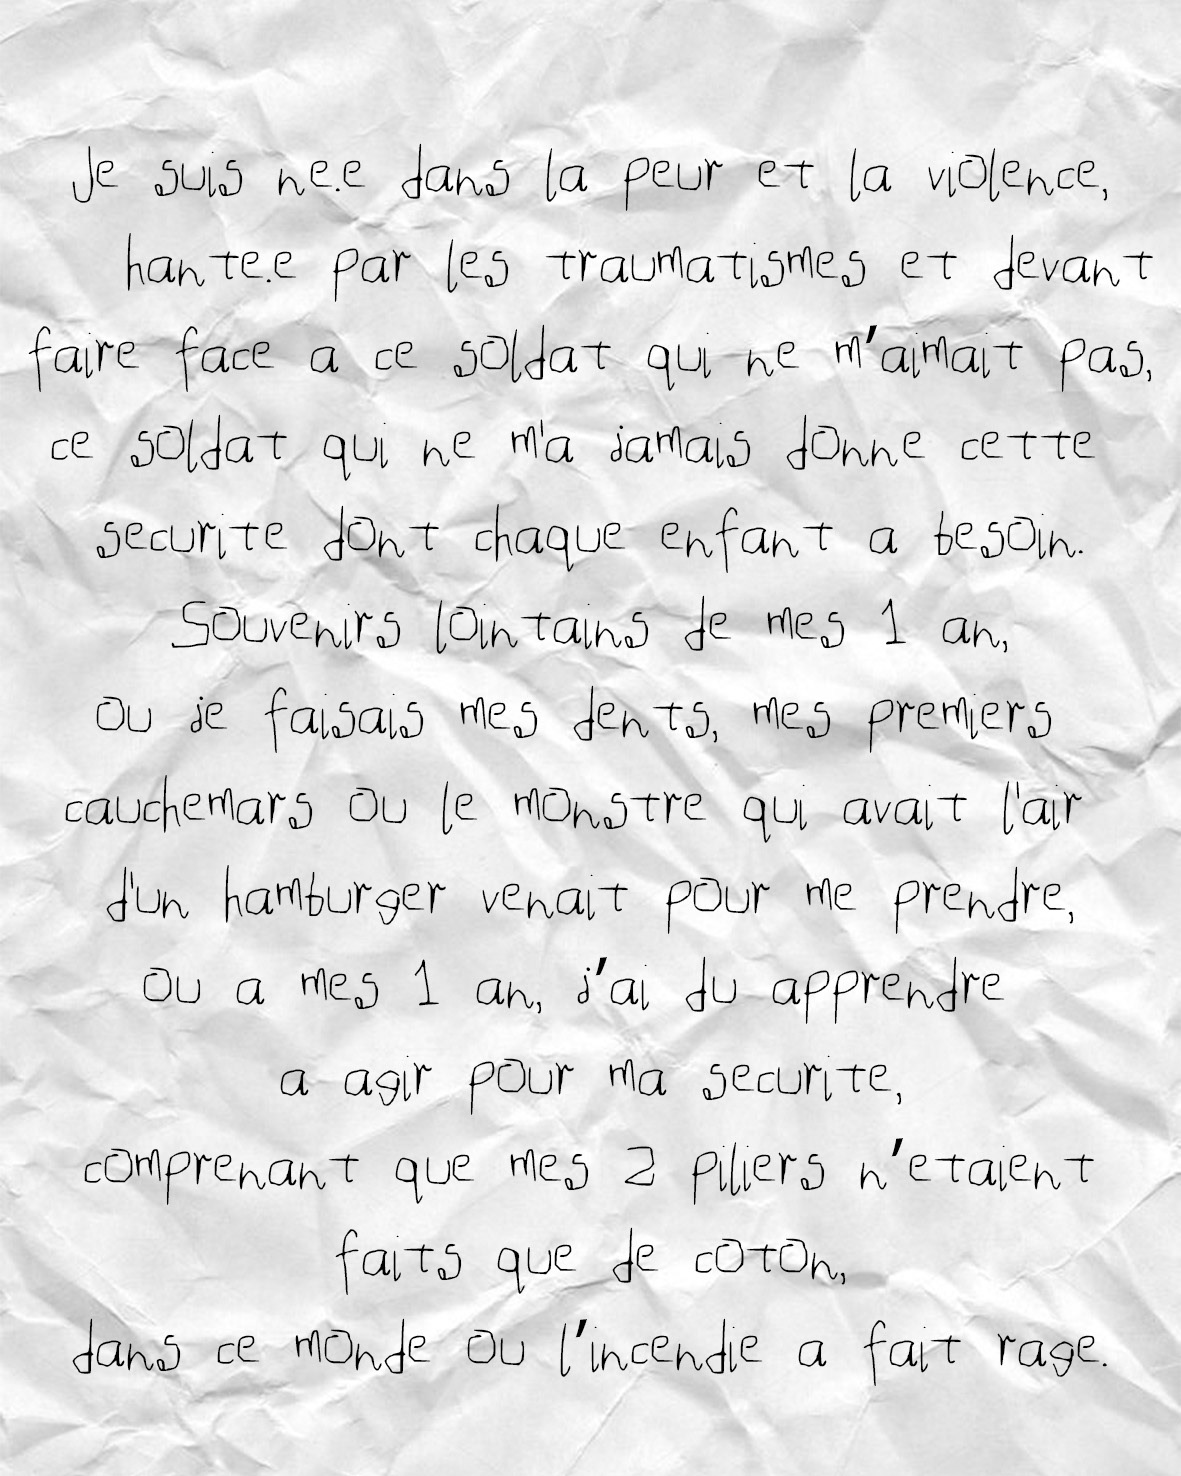 Je suis ne.e dans la peur et la violence,
hante.e par les traumatismes et devant
faire face a ce soldat qui ne m'aimait pas,
ce soldat qui ne m'a jamais donne cette
securite dont chaque enfant a besoin.
Souvenirs lointains de mes 1 an,
ou je faisais mes dents, mes premiers
cauchemars ou le monstre qui avait l'air
d'un hamburger venait pour me prendre,
ou a mes 1 an, j'ai du apprendre
a agir pour ma securite,
comprenant que mes 2 piliers n'etaient
faits que de coton,
dans ce monde ou l'incendie a fait rage.